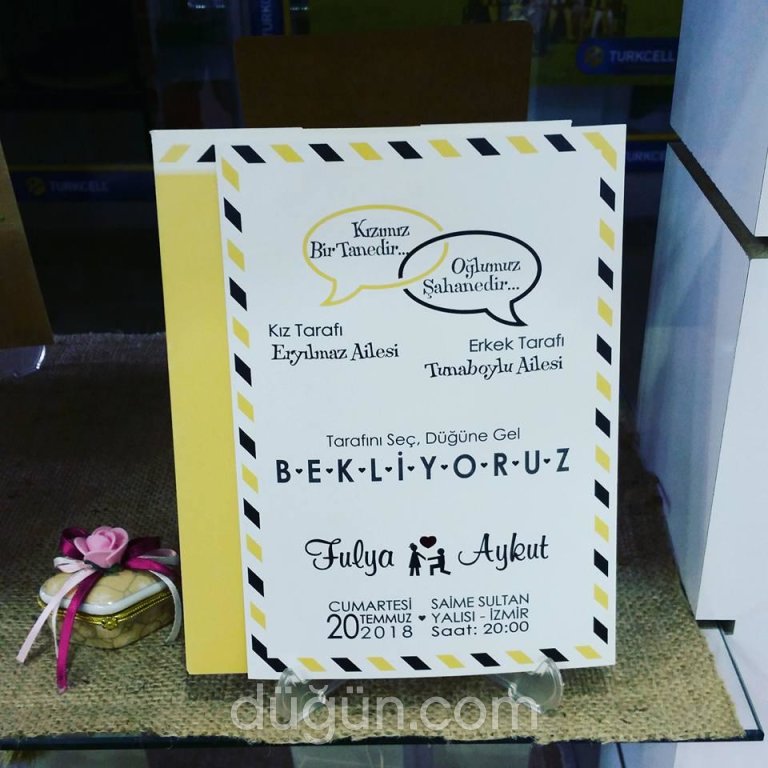 TURKCELL
TURKCELL
Kızımız
Bir Tanedir...
Oğlumuz
Şahanedir...
Kız Tarafı
Eryılmaz Ailesi
Erkek Tarafı
Tunaboylu Ailesi
Tarafını Seç, Düğüne Gel
B•E•K•L•İ•Y•O•R•U•Z
Fulya Aykut
CUMARTESİ
20 TEMMUZ
2018
SAİME SULTAN
YALISI - İZMİR
Saat: 20:00
düğün.com